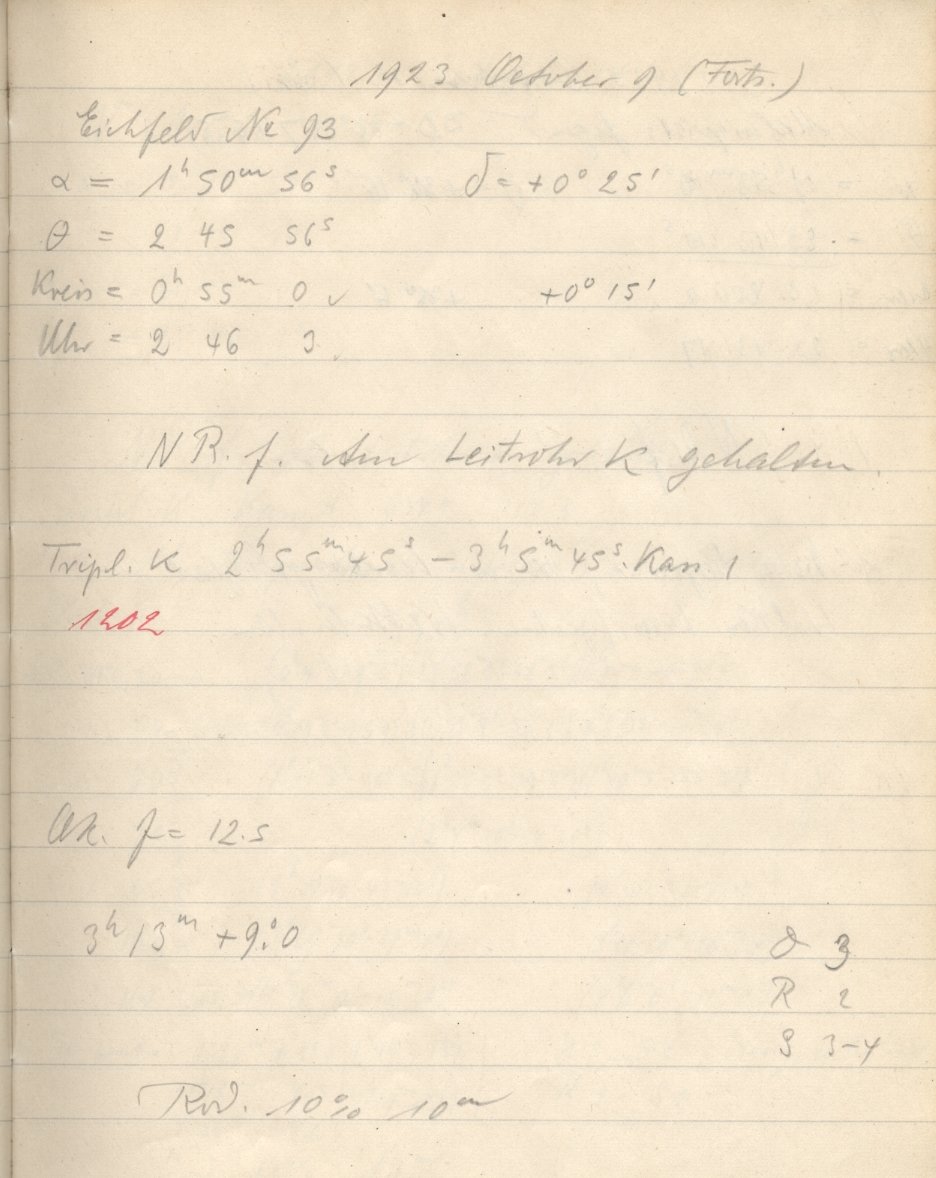 1923 October 9 (Forts.)
Eichfeld No 93
α = 1ʰ 50ᵐ 56ˢ δ = +0° 25'
θ = 2 45 56ˢ
Kreis = 0ʰ 55ᵐ 0 ✓ +0° 15'
Uhr = 2 46 3.
NR. f. Am Leitrohr K gehalten.
Tripl. K 2ʰ 55ᵐ 45ˢ – 3ʰ 5ᵐ 45ˢ. Kass 1
1202
Ok. f = 12.5
3ʰ 13ᵐ +9.°0
3
R 2
S 3–4
Rod. 10% 10ᵐ